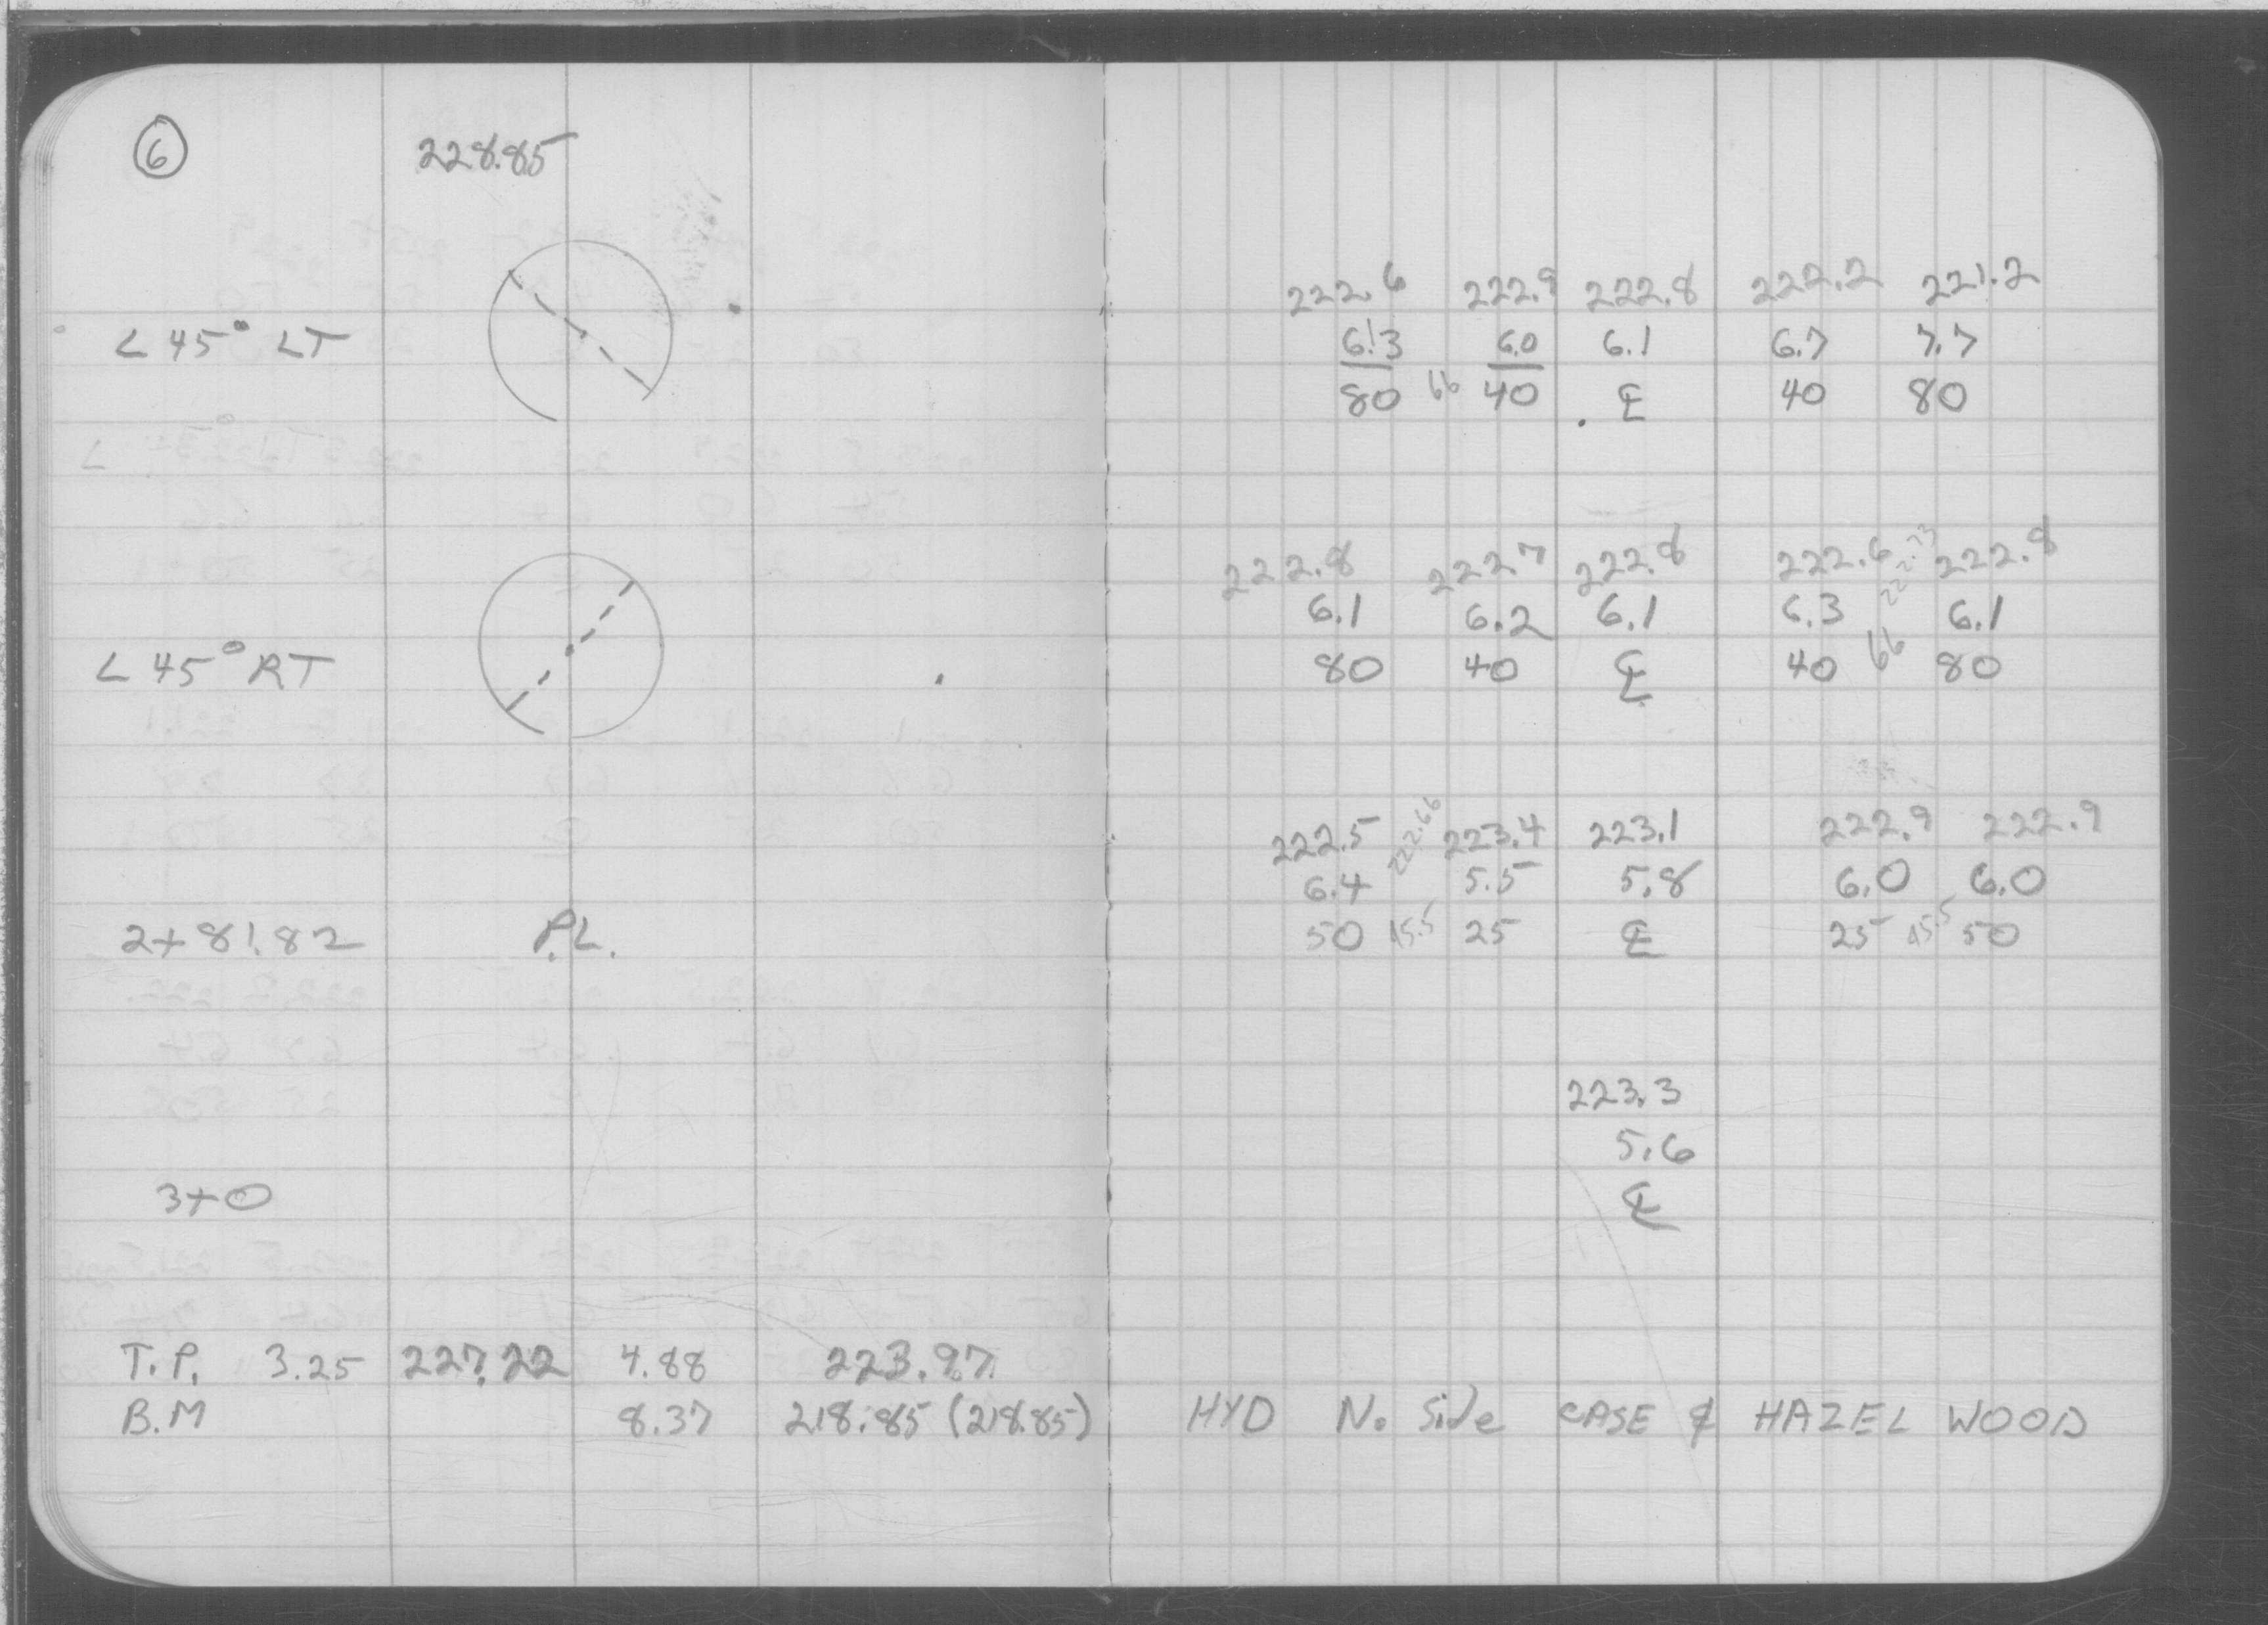 6 228.85
222.6 222.9 222.8 222.2 221.2
∠ 45° LT 6.3 6.0 6.1 6.7 7.7
80 66 40 ℄ 40 80
222.8 222.7 222.8 222.6 222.73 222.8
6.1 6.2 6.1 6.3 6.1
∠ 45° RT 80 40 ℄ 40 66 80
222.5 222.66 223.4 223.1 222.9 222.9
6.4 5.5 5.8 6.0 6.0
2+81.82 P.L. 50 45.5 25 ℄ 25 45.5 50
223.3
5.6
3+0 ℄
T.P. 3.25 227.22 4.88 223.97
B.M 8.37 218.85 (218.85) HYD No. Side CASE & HAZEL WOOD